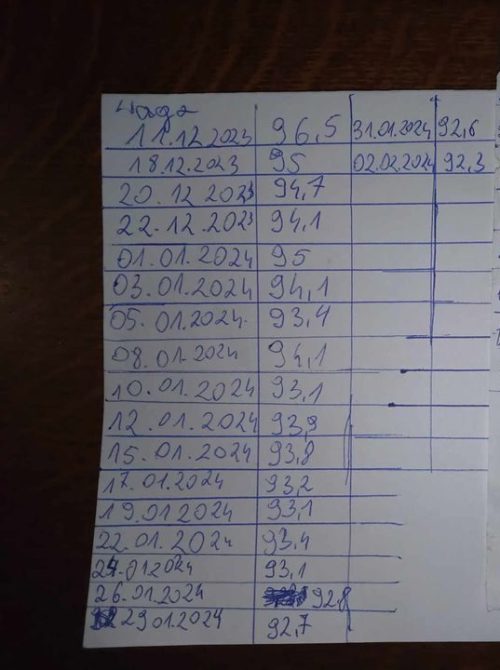 11.12.2023 96,5 31.01.2024 92,6
18.12.2023 95 02.02.2024 92,3
20.12.2023 94,7
22.12.2023 94,1
01.01.2024 95
03.01.2024 94,1
05.01.2024. 93,4
08.01.2024 94,1
10.01.2024 93,1
12.01.2024 93,9
15.01.2024 93,8
17.01.2024 93,2
19.01.2024 93,1
22.01.2024 93,4
24.012024 93,1
26.01.2024 92,8
29.01.2024 92,7